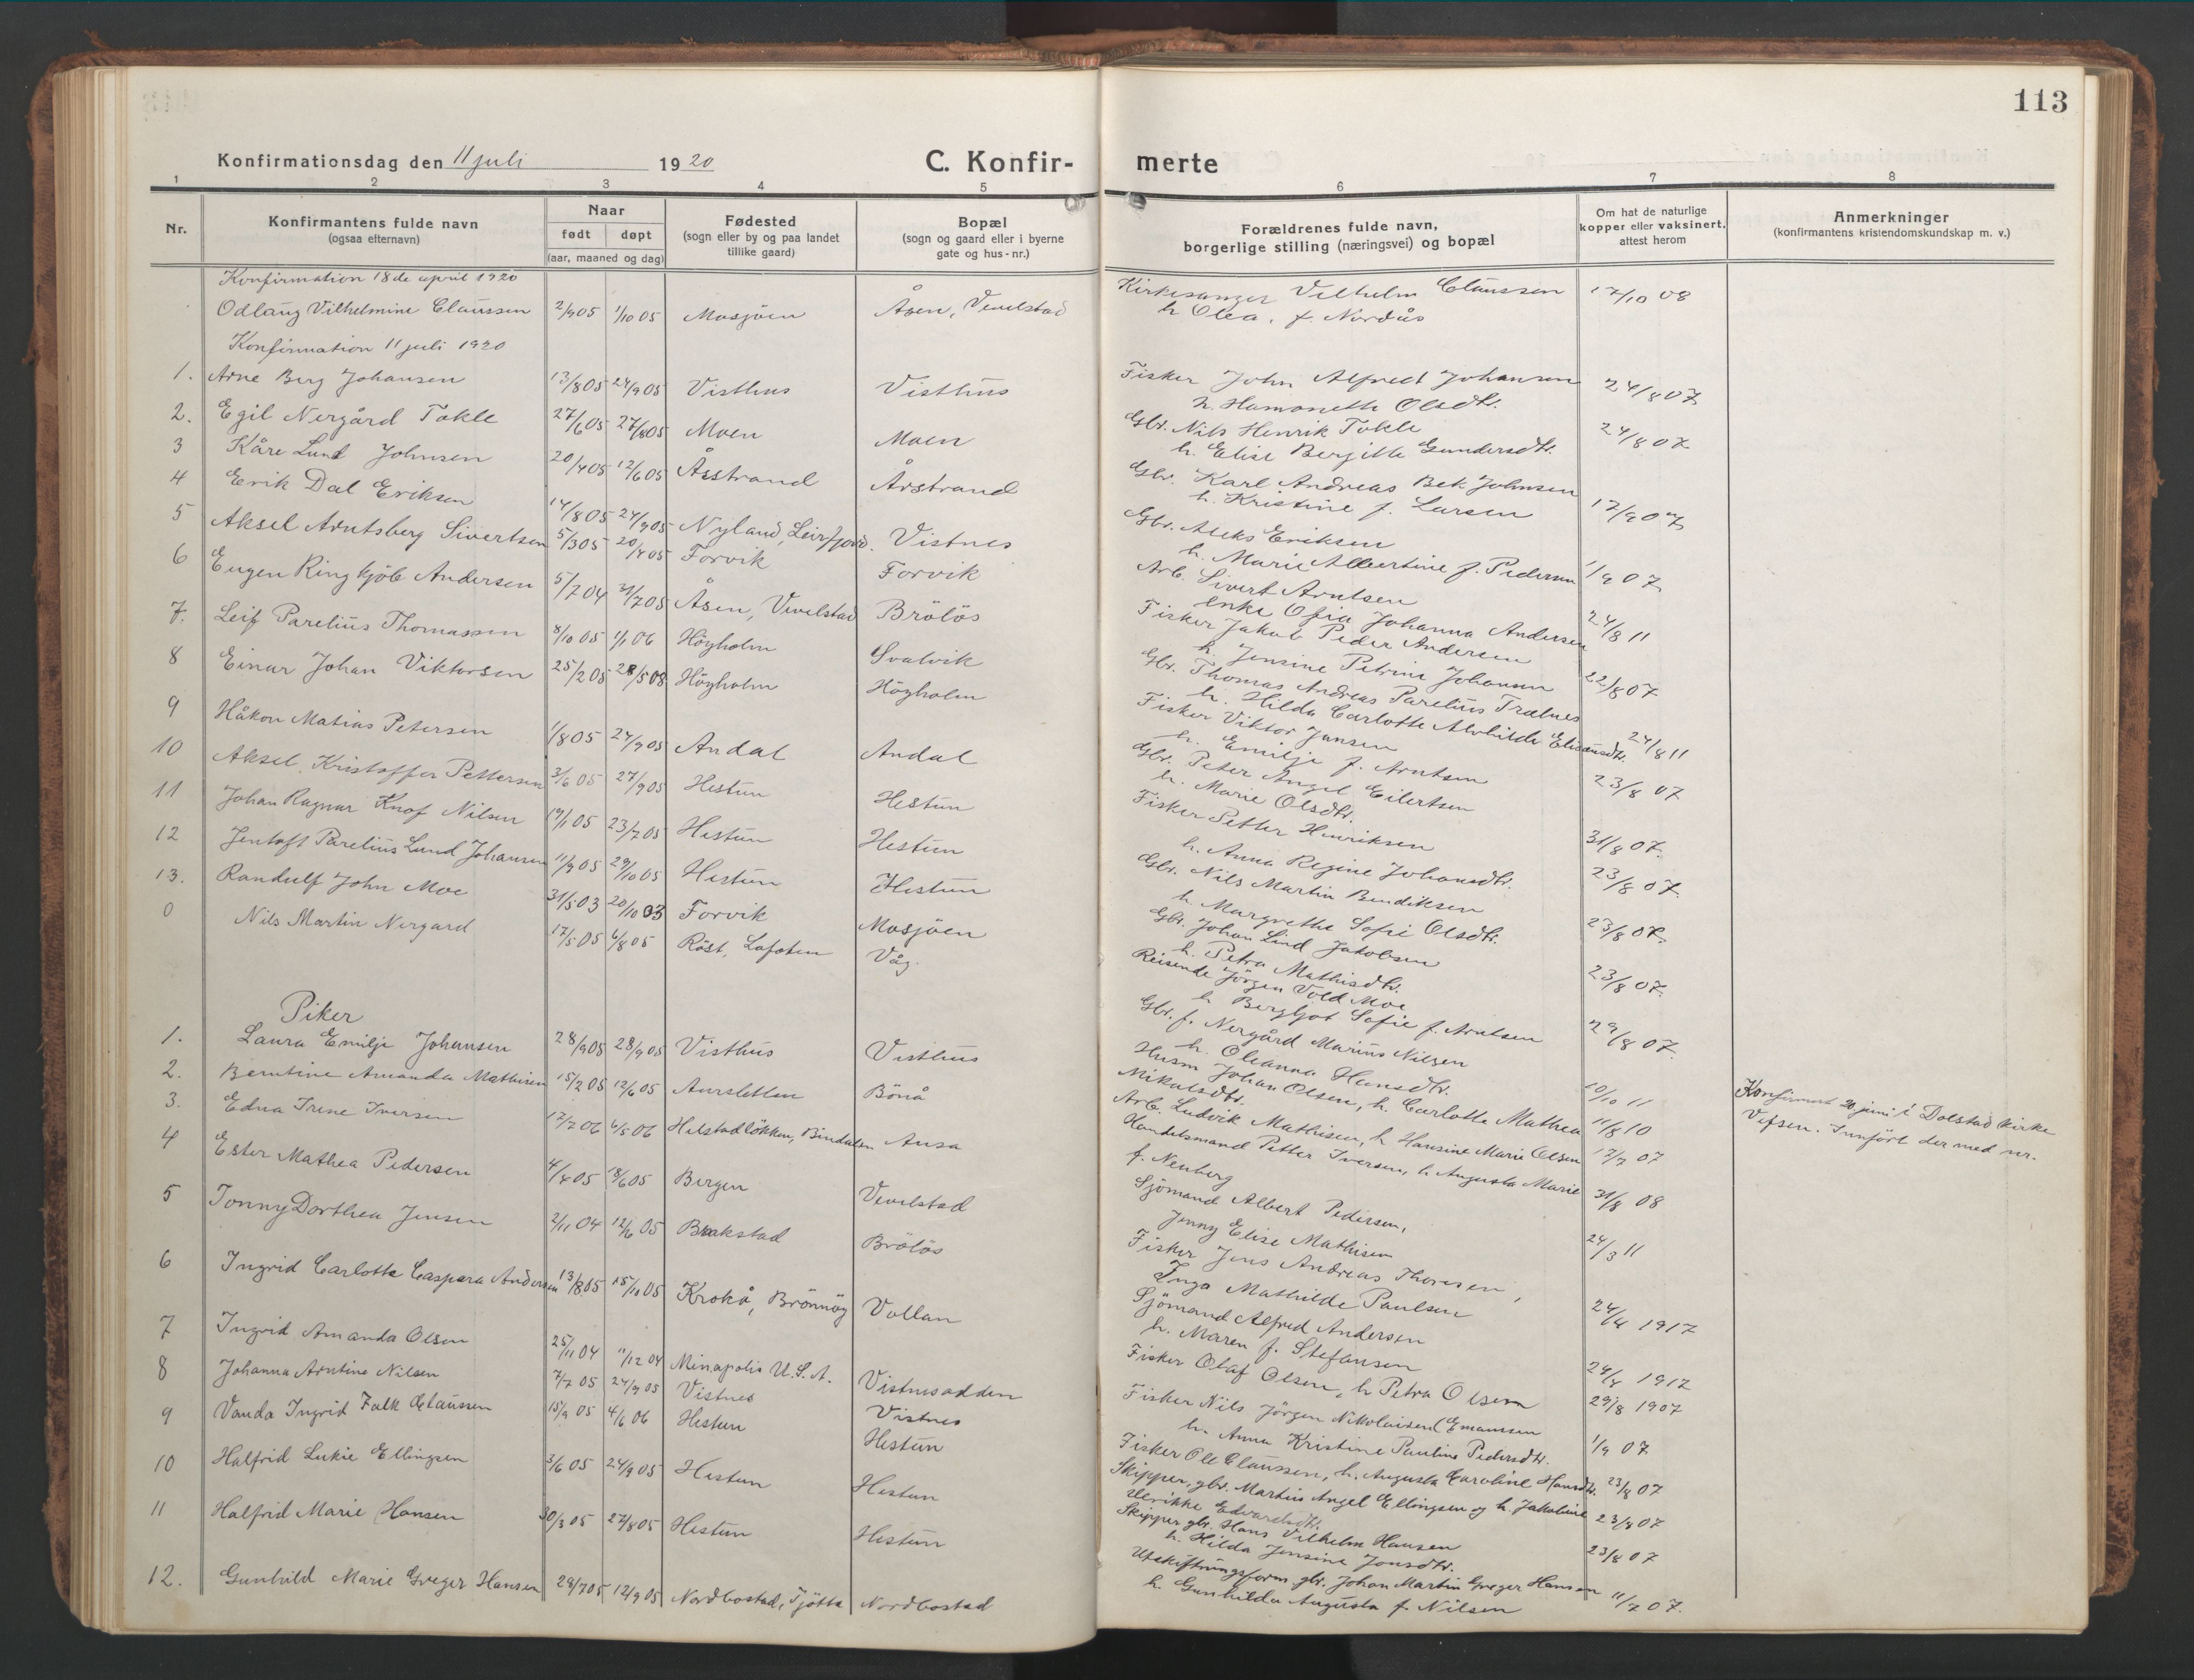 113
Konfirmationsdag den 11 juli 1920
C. Konfir-
merte
1 2 3 4 5 6 7 8
Nr.
Konfirmantens fulde navn
(ogsaa efternavn)
Naar
født døpt
(aar, maaned og dag)
Fødested
(sogn eller by og paa landet
tillike gaard)
Bopæl
(sogn og gaard eller i byerne
gate og hus-nr.)
Forældrenes fulde navn,
borgerlige stilling (næringsvei) og bopæl
Om hat de naturlige
kopper eller vaksinert,
attest herom
Anmerkninger
(konfirmantens kristendomskundskap m. v.)
Konfirmation 18de april 1920
Odlaug Vilhelmine Claussen 2/9 05 1/10 05 Mosjöen Åsen, Vevelstad
Kirkesanger Vilhelm Claussen 17/10 08
h. Olea, f. Nordås
Konfirmation 11 juli 1920
1. Arne Berg Johansen 13/8 05 24/9 05 Visthus Visthus
Fisker John Alfred Johansen 24/8 07
h. Hamonette Olsdtr.
2. Egil Nergård Tokle 27/6 05 27/8 05 Moen Moen
Gbr. Nils Henrik Tokle 24/8 07
h. Elise Bergitte Gundersdtr.
3 Kåre Lund Johnsen 20/4 05 12/6 05 Åsstrand Årstrand
Gbr. Karl Andreas Bek. Johnsen 17/9 07
h. Kristine f. Larsen
4 Erik Dal Eriksen 14/8 05 24/9 05 Nyland, Leirfjord. Vistnes
Gbr. Aleks Eriksen
h. Marie Albertine f. Pedersen 1/9 07
5 Aksel Arntsberg Sivertsen 5/3 05 20/4 05 Forvik Forvik
Arb. Sivert Arntsen
enke Ofia Johanna Andersen 24/8 11
6 Eugen Ringkjöb Andersen 5/7 04 31/7 05 Åsen, Vevelstad Brölös
Fisker Jakob Peder Andersen
h. Jensine Petrine Johansen 22/8 07
7. Leif Parelius Thomassen 8/10 05 1/1 06 Höyholm Svalvik
Gbr. Thomas Andreas Parelius Trælnes
h. Hilda Carlotte Alvhilde Eliseusdtr. 24/8 11
8 Einar Johan Viktorsen 25/2 05 28/5 08 Höyholm Höyholm
Fisker Viktor Jansen
h. Emilje f. Arntsen 23/8 07
9 Håkon Matias Petersen 1/8 05 24/9 05 Andal Andal
Gbr. Peter Angel Eilertsen
h. Marie Olsdtr. 31/8 07.
10 Aksel Kristoffer Pettersen 3/6 05 27/9 05 Hestun Hestun
Fisker Petter Henriksen
h. Anna Regine Johansdtr. 23/8 07
11 Johan Ragnar Knof Nilsen 19/1 05 23/7 05 Hestun Hestun
Gbr. Nils Martin Bendiksen
h. Margrethe Sofie Olsdtr. 23/8 07.
12 Jentoft Parelius Lund Johansen 11/9 05 29/10 05 Hestun Hestun
Gbr. Johan Lind Jakobsen
h. Petra Mathisdtr. 23/8 07.
13. Randulf John Moe 31/5 03 20/10 03 Forvik Mosjöen
Reisende Jörgen Vold Moe
h Bergljot Sofie f. Arntsen 29/8 07.
0 Nils Martin Nergard 17/5 05 6/8 05 Röst, Lofoten Våg.
Gbr. f. Nergård Marius Nilsen
h. Oleanna Hansdtr. 10/10 11
Konfirmert 20 juni i Dolstad kirke
Vefsen. Innfört der med nr.
Piker
1. Laura Emilje Johansen 28/9 05 28/9 05 Visthus Visthus
Husm Johan Olsen, h. Carlotte Mathea 11/8 10
Mikalsdtr.
2. Berntine Amanda Mathisen 15/2 05 12/6 05 Aursletten Bönå
Arb. Ludvik Mathisen, h Hansine Marie Olsen 17/7 07
3. Edna Irene Iversen 17/2 06 6/5 06 Helstadlökken, Bindalen Ausa
Handelsmand Petter Iversen, h Augusta Marie 31/8 08
f. Neuberg
4 Ester Mathea Pedersen 4/4 05 18/6 05 Bergen Vevelstad
Sjömand Albert Pedersen,
Jenny Elise Mathisen 24/3 11
5 Tonny Dorthea Jensen 2/11 04 12/6 05 Brakstad Brölös
Fisker Jens Andreas Thoresen,
Inga Mathilde Paulsen 24/4 1917
6 Ingrid Carlotte Caspara Andersen 13/8 05 15/10 05 Krokå, Brönnöy Vollan
Sjömand Alfred Andersen
h. Maren f. Stefansen 24/4 1917
7 Ingrid Amanda Olsen 25/11 04 11/12 04 Minapolis U.S.A. Vistnesodden
Fisker Olaf Olsen, h Petra Olsen 29/8 1907
8 Johanna Arntine Nilsen 7/7 05 24/9 05 Vistnes Vistnes
Fisker Nils Jörgen Nikolaisen (Emaussen
h. Anna Kristine Pauline Pedersdtr. 1/9 07
9 Vanda Ingrid Falk Claussen 15/9 05 4/6 06 Hestun Hestun
Fisker Ole Claussen, h. Augusta Caroline Hansdtr. 23/8 07
10 Halfrid Lukie Ellingsen 3/6 05 24/9 05 Hestun Hestun
Skipper, gbr. Martius Angel Ellingsen og h. Jakobine 23/8 07
Ulrikke Edvardsdtr.
11 Halfrid Marie Hansen 30/3 05 27/8 05 Hestun Hestun
Skipper gbr. Hans Vilhelm Hansen
h. Hilda Jensine Jonsdtr. 23/8 07
12. Gunhild Marie Greger Hansen 29/7 05 12/9 05 Nordbostad, Tjötta Nordbostad
Utskiftningsform gbr. Johan Martin Greger Hansen 11/7 07.
h. Gunhilda Augusta f. Nilsen